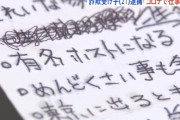 詐欺受け子(21)逮捕! コロナで仕事
・有名ホストになる
・めんどくさい事も全
・東京に出るとき